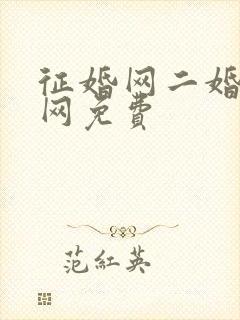 征婚网二婚
网免费
范紅英